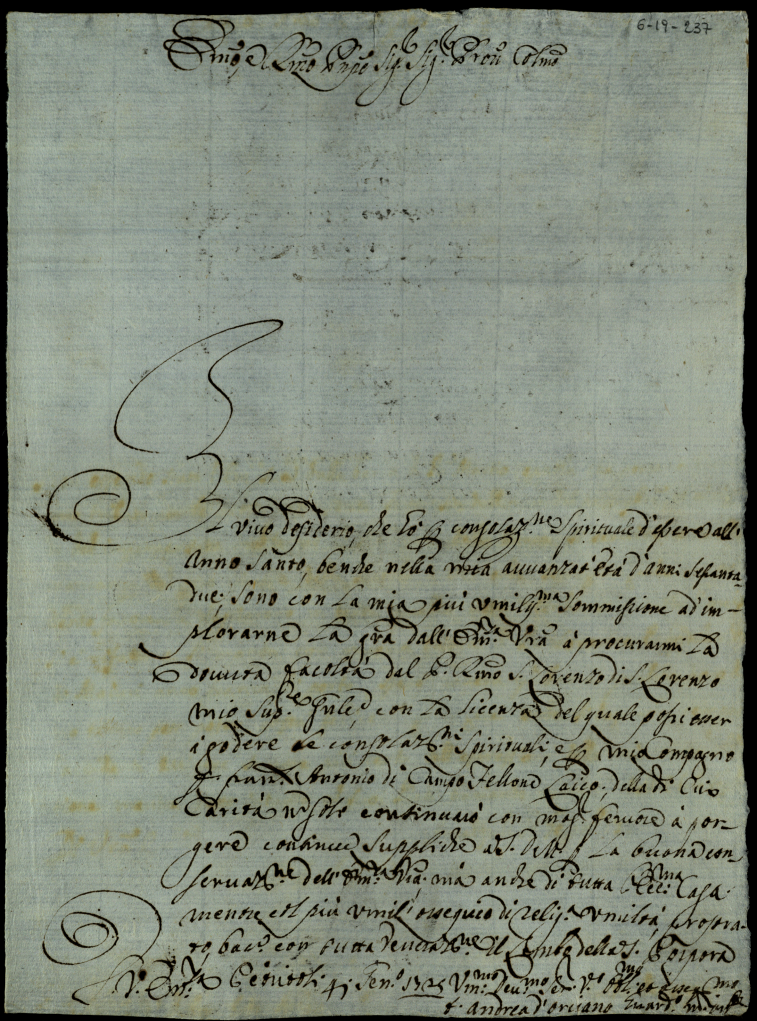 6-19-237
Em̃o, e Rmo Pnpe Sig.r Sig.r Pron Colmo
Il vivo desiderio, che hò p consolaz.ne Spirituale d'essere all'
Anno Santo, benche nella mia avvanzat'età d'anni Settanta
due; sono con la mia più Umiliss.ma Sommissione ad im-
plorarne la gra dall' Em.za Vra à procurarmi la
dovuta facoltà dal P. Rmo S. Lorenzo di S. Lorenzo
mio Sup.re Gñle con la licenza del quale possi esser
à godere le consolaz.ni Spirituali, e p mio Compagno
Antonio di Campo Laico, della di Cui
Carità nõ solo continuarò con mag.r fervore à por-
gere continue Suppliche à S. D. M. p la buona con
servaz.ne dell' Em.za Vra mà anche di tutta l'Ecc.ma Casa
mentre col più umil' ossequio di relig.a umiltà, prostra-
to, bacio con tutta veneraz.ne il Lembo della S. Porpora
V.ra Em.za Gen.o 1725 Um.mo Dev.mo
f. Andrea d'Orciano Guard.o